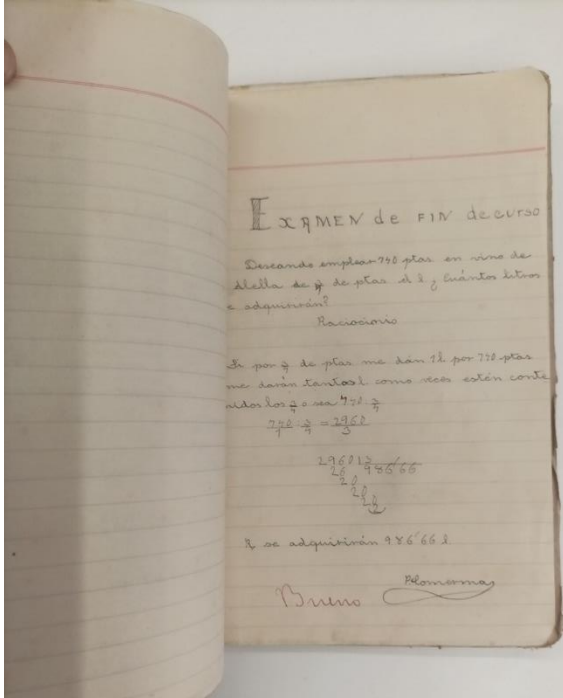 EXAMEN de FIN de curso
Deseando emplear 740 ptas en vino de
Alella de de ptas el l ¿Cuántos litros
e adquirirán?
Raciocinio
Si por 3/4 de ptas me dán 1 l por 740 ptas
me darán tantos l como veces estén conte
nidos los 3/4 o sea 740 3/4
740/1 : 3/4 = 2960/3
2960 13
26 986'66
20
20
20
2
R se adquirirán 986'66 l
Bueno